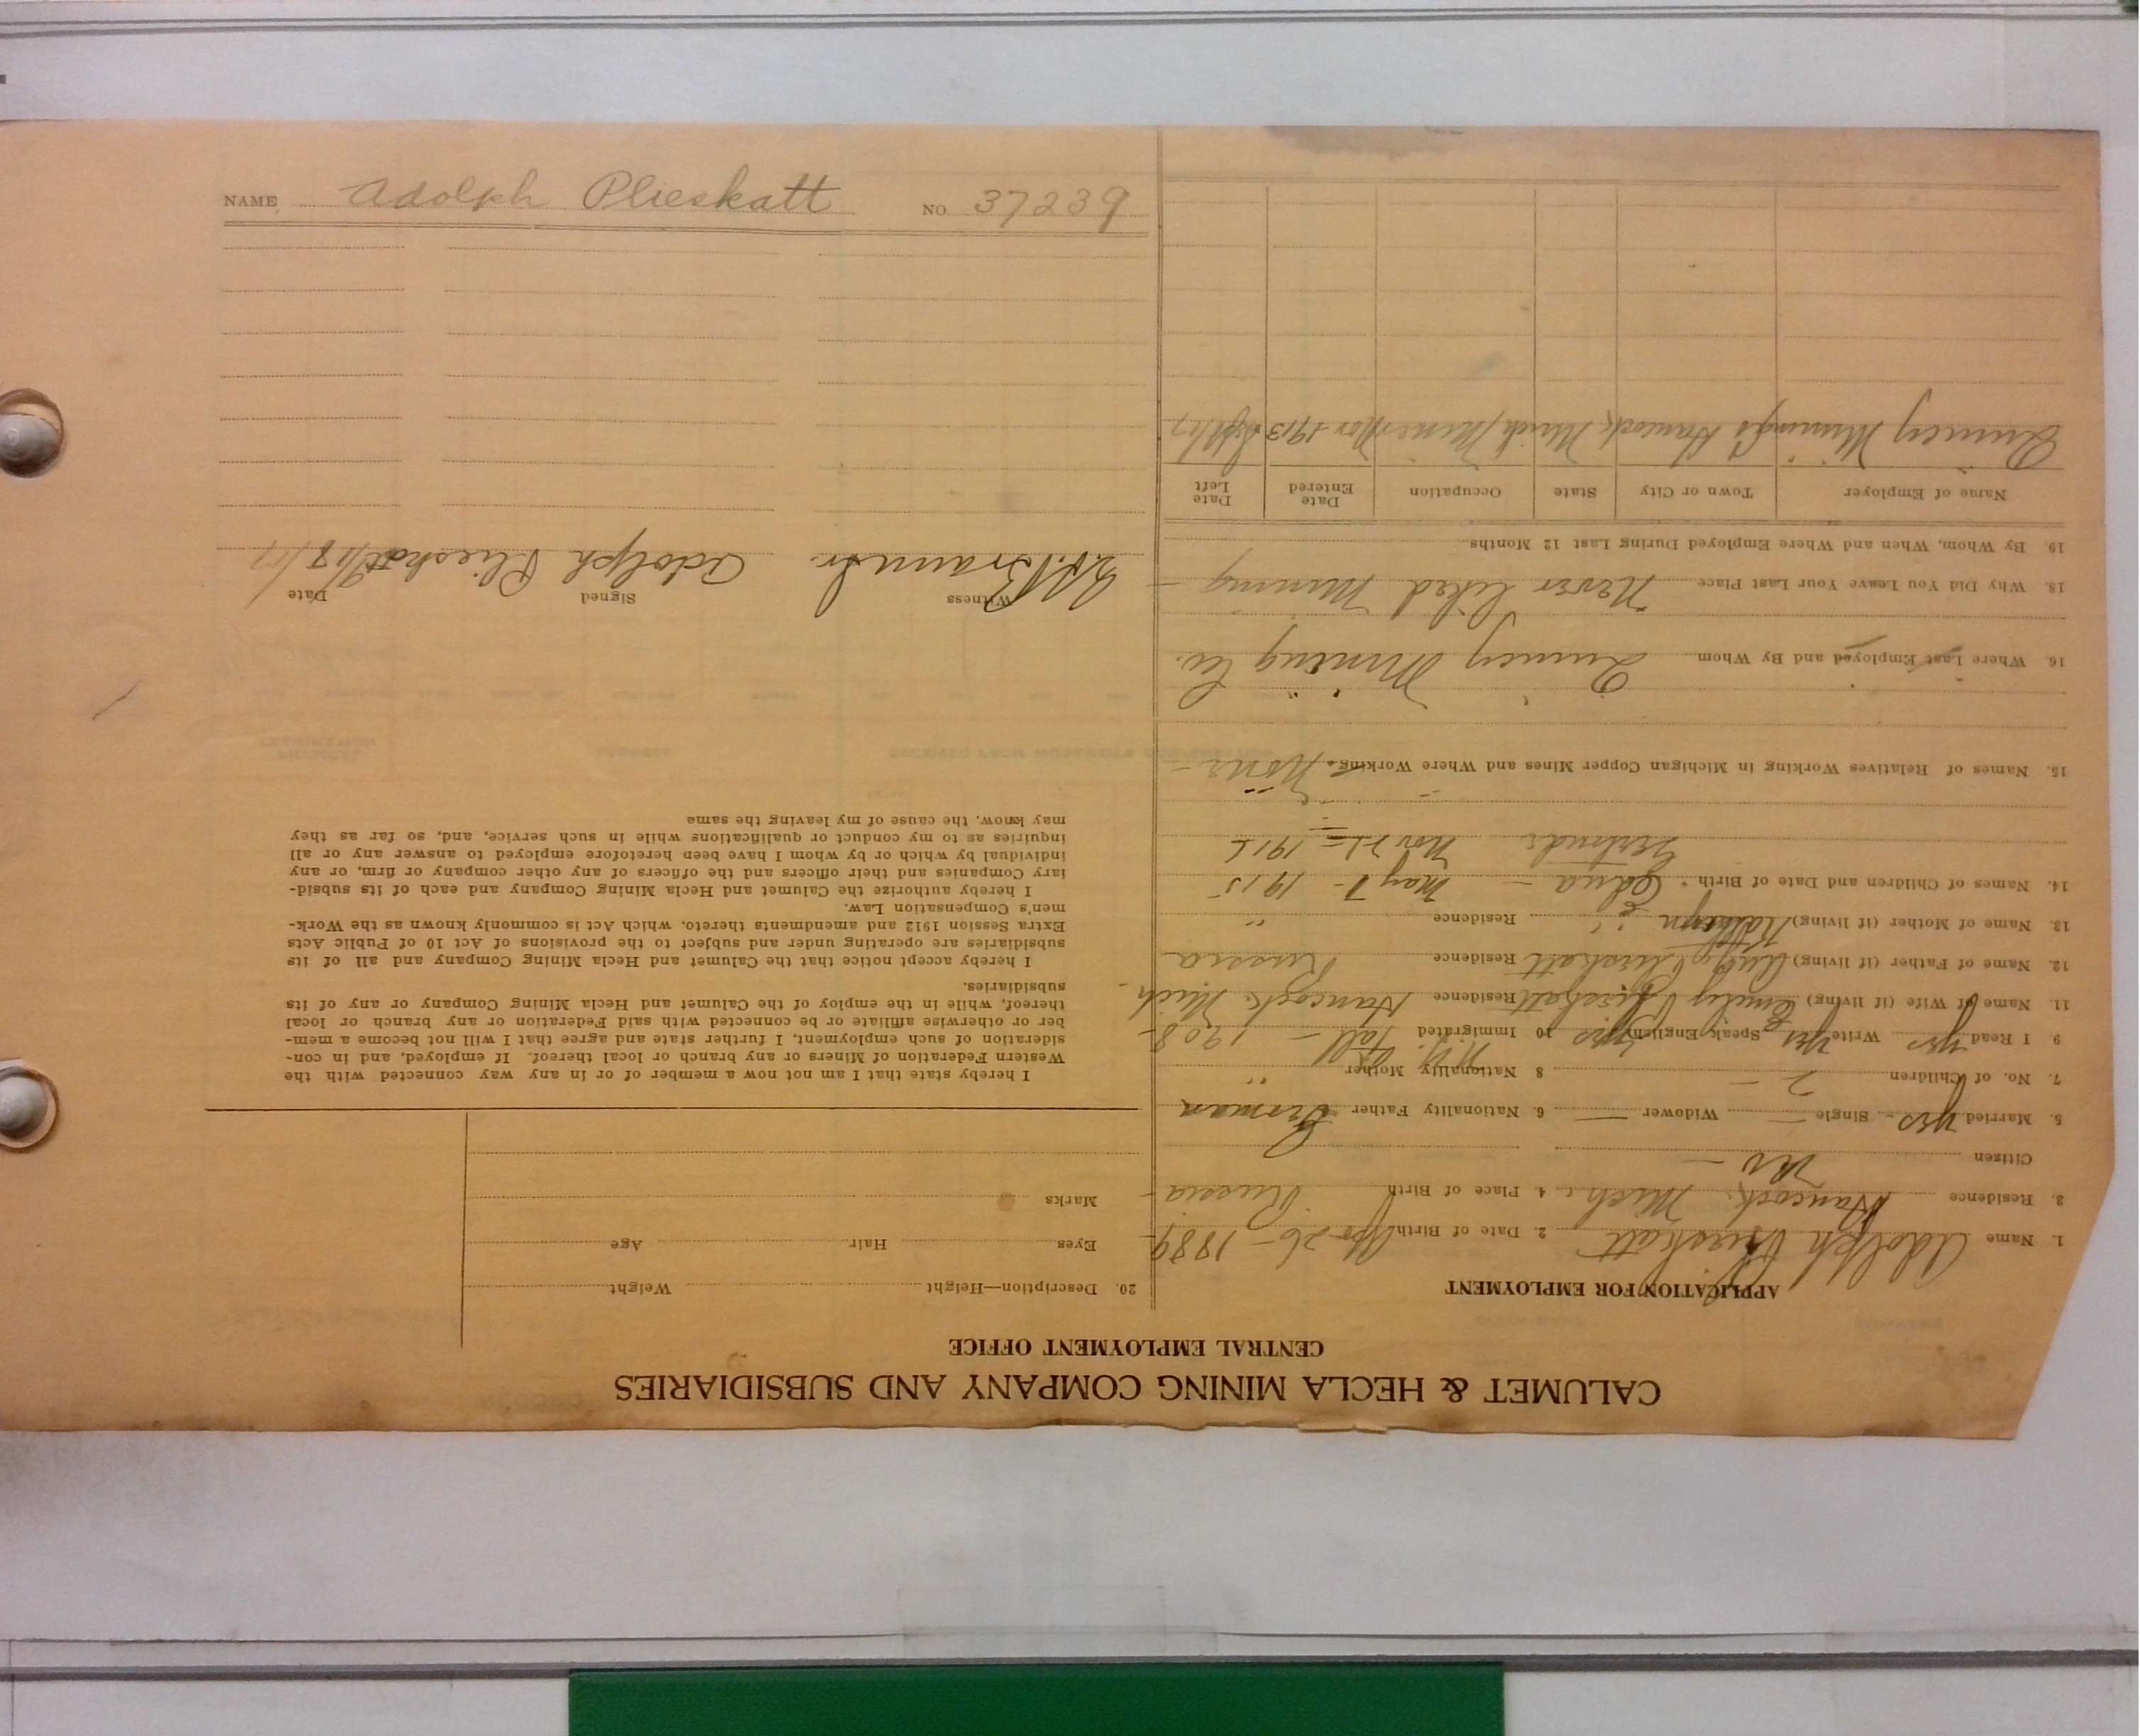 CALUMET & HECLA MINING COMPANY AND SUBSIDIARIES
CENTRAL EMPLOYMENT OFFICE
APPLICATION FOR EMPLOYMENT
1. Name Adolph Plieskatt 2. Date of Birth Apr 26 - 1889
3. Residence Hancock, Mich. 4. Place of Birth Russia -
Citizen No -
5. Married yes - Single — Widower — 6. Nationality Father German
7. No. of Children 2 - 8 Nationality Mother "
9 I Read yes Write yes Speak English yes 10 Immigrated N.Y. Fall - 1908 -
11. Name of Wife (if living) Emily Plieskatt Residence Hancock Mich -
12. Name of Father (if living) Aug Plieskatt Residence Russia
13. Name of Mother (if living) Kathryn " Residence "
14. Names of Children and Date of Birth. Edna - May 7 - 1915
Gertrude Nov 21 = 1916
15. Names of Relatives Working in Michigan Copper Mines and Where Working. None -
16. Where Last Employed and By Whom Quincy Mining Co.
18. Why Did You Leave Your Last Place Never liked Mining -
19. By Whom, When and Where Employed During Last 12 Months
Name of Employer Town or City State Occupation Date Entered Date Left
Quincy Mining Co Hancock, Mich Miner Nov 1913 Sept/17
20. Description—Height Weight
Eyes Hair Age
Marks
I hereby state that I am not now a member of or in any way connected with the
Western Federation of Miners or any branch or local thereof. If employed, and in con-
sideration of such employment, I further state and agree that I will not become a mem-
ber or otherwise affiliate or be connected with said Federation or any branch or local
thereof, while in the employ of the Calumet and Hecla Mining Company or any of its
subsidiaries.
I hereby accept notice that the Calumet and Hecla Mining Company and all of its
subsidiaries are operating under and subject to the provisions of Act 10 of Public Acts
Extra Session 1912 and amendments thereto, which Act is commonly known as the Work-
men's Compensation Law.
I hereby authorize the Calumet and Hecla Mining Company and each of its subsid-
iary Companies and their officers and the officers of any other company or firm, or any
individual by which or by whom I have been heretofore employed to answer any or all
inquiries as to my conduct or qualifications while in such service, and, so far as they
may know, the cause of my leaving the same
Witness Signed Date
Adolph Plieskatt
NAME Adolph Plieskatt NO 37239